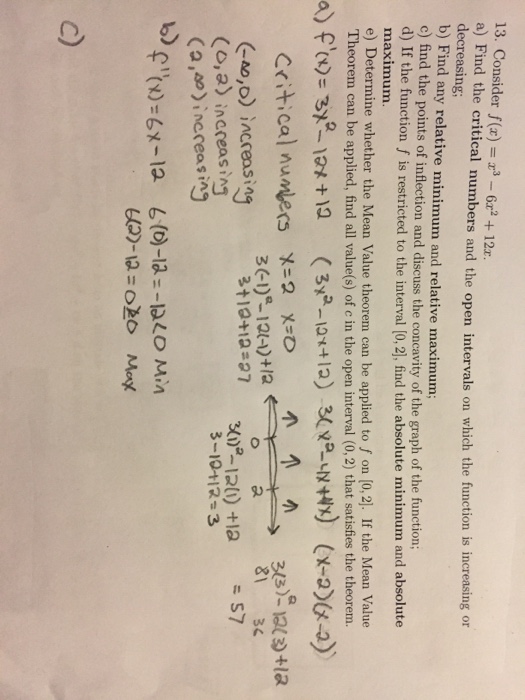 13. Consider f(x) = x³ − 6x² + 12x.
a) Find the critical numbers and the open intervals on which the function is increasing or
decreasing;
b) Find any relative minimum and relative maximum;
c) find the points of inflection and discuss the concavity of the graph of the function;
d) If the function f is restricted to the interval [0, 2], find the absolute minimum and absolute
maximum.
e) Determine whether the Mean Value theorem can be applied to f on [0, 2]. If the Mean Value
Theorem can be applied, find all value(s) of c in the open interval (0, 2) that satisfies the theorem.
a) f'(x) = 3x² − 12x + 12 (3x² − 12x + 12) 3(x² − 4x + 4x) (x−2)(x−2)
Critical numbers x=2 x=0
↑ ↑ ↑
0 2
(-∞,0) increasing 3(-1)² − 12(-1) + 12 3(3)² − 12(3) + 12
(0,2) increasing 3+12+12 = 27 3(1)² − 12(1) + 12 81 36
(2,∞) increasing 3−12+12 = 3 = 57
b) f''(x) = 6x − 12 6(0) − 12 = −12 < 0 Min
6(2) − 12 = 0 ≥ 0 Max
c)